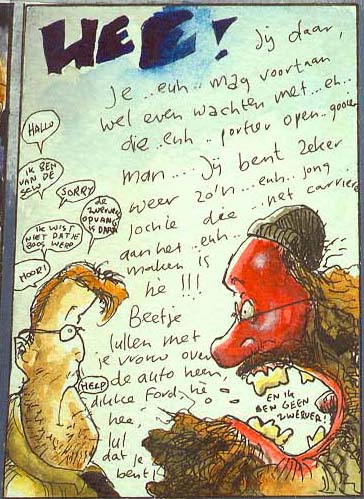 HEE! Jij daar,
Je ..euh.. mag voortaan
wel even wachten met...eh..
die ..enh.. portier open..gooi
man.... Jij bent zeker
weer zo'n ...enh.. jong
jochie die ... net carrière
aan het ..enh....
maken is
hè !!!
Beetje
lullen met
je vrouw over
de auto heen,
dikke Ford, hè
hee,
lul
dat je
bent!
HALLO
IK BEN
VAN DE
SEW
SORRY
DE
ZWERVERS
OPVANG
IS DAAR
IK WIST
NIET DAT JE
BOOS WERD
HOOR!
HELP
EN IK
BEN GEEN
ZWERVER!